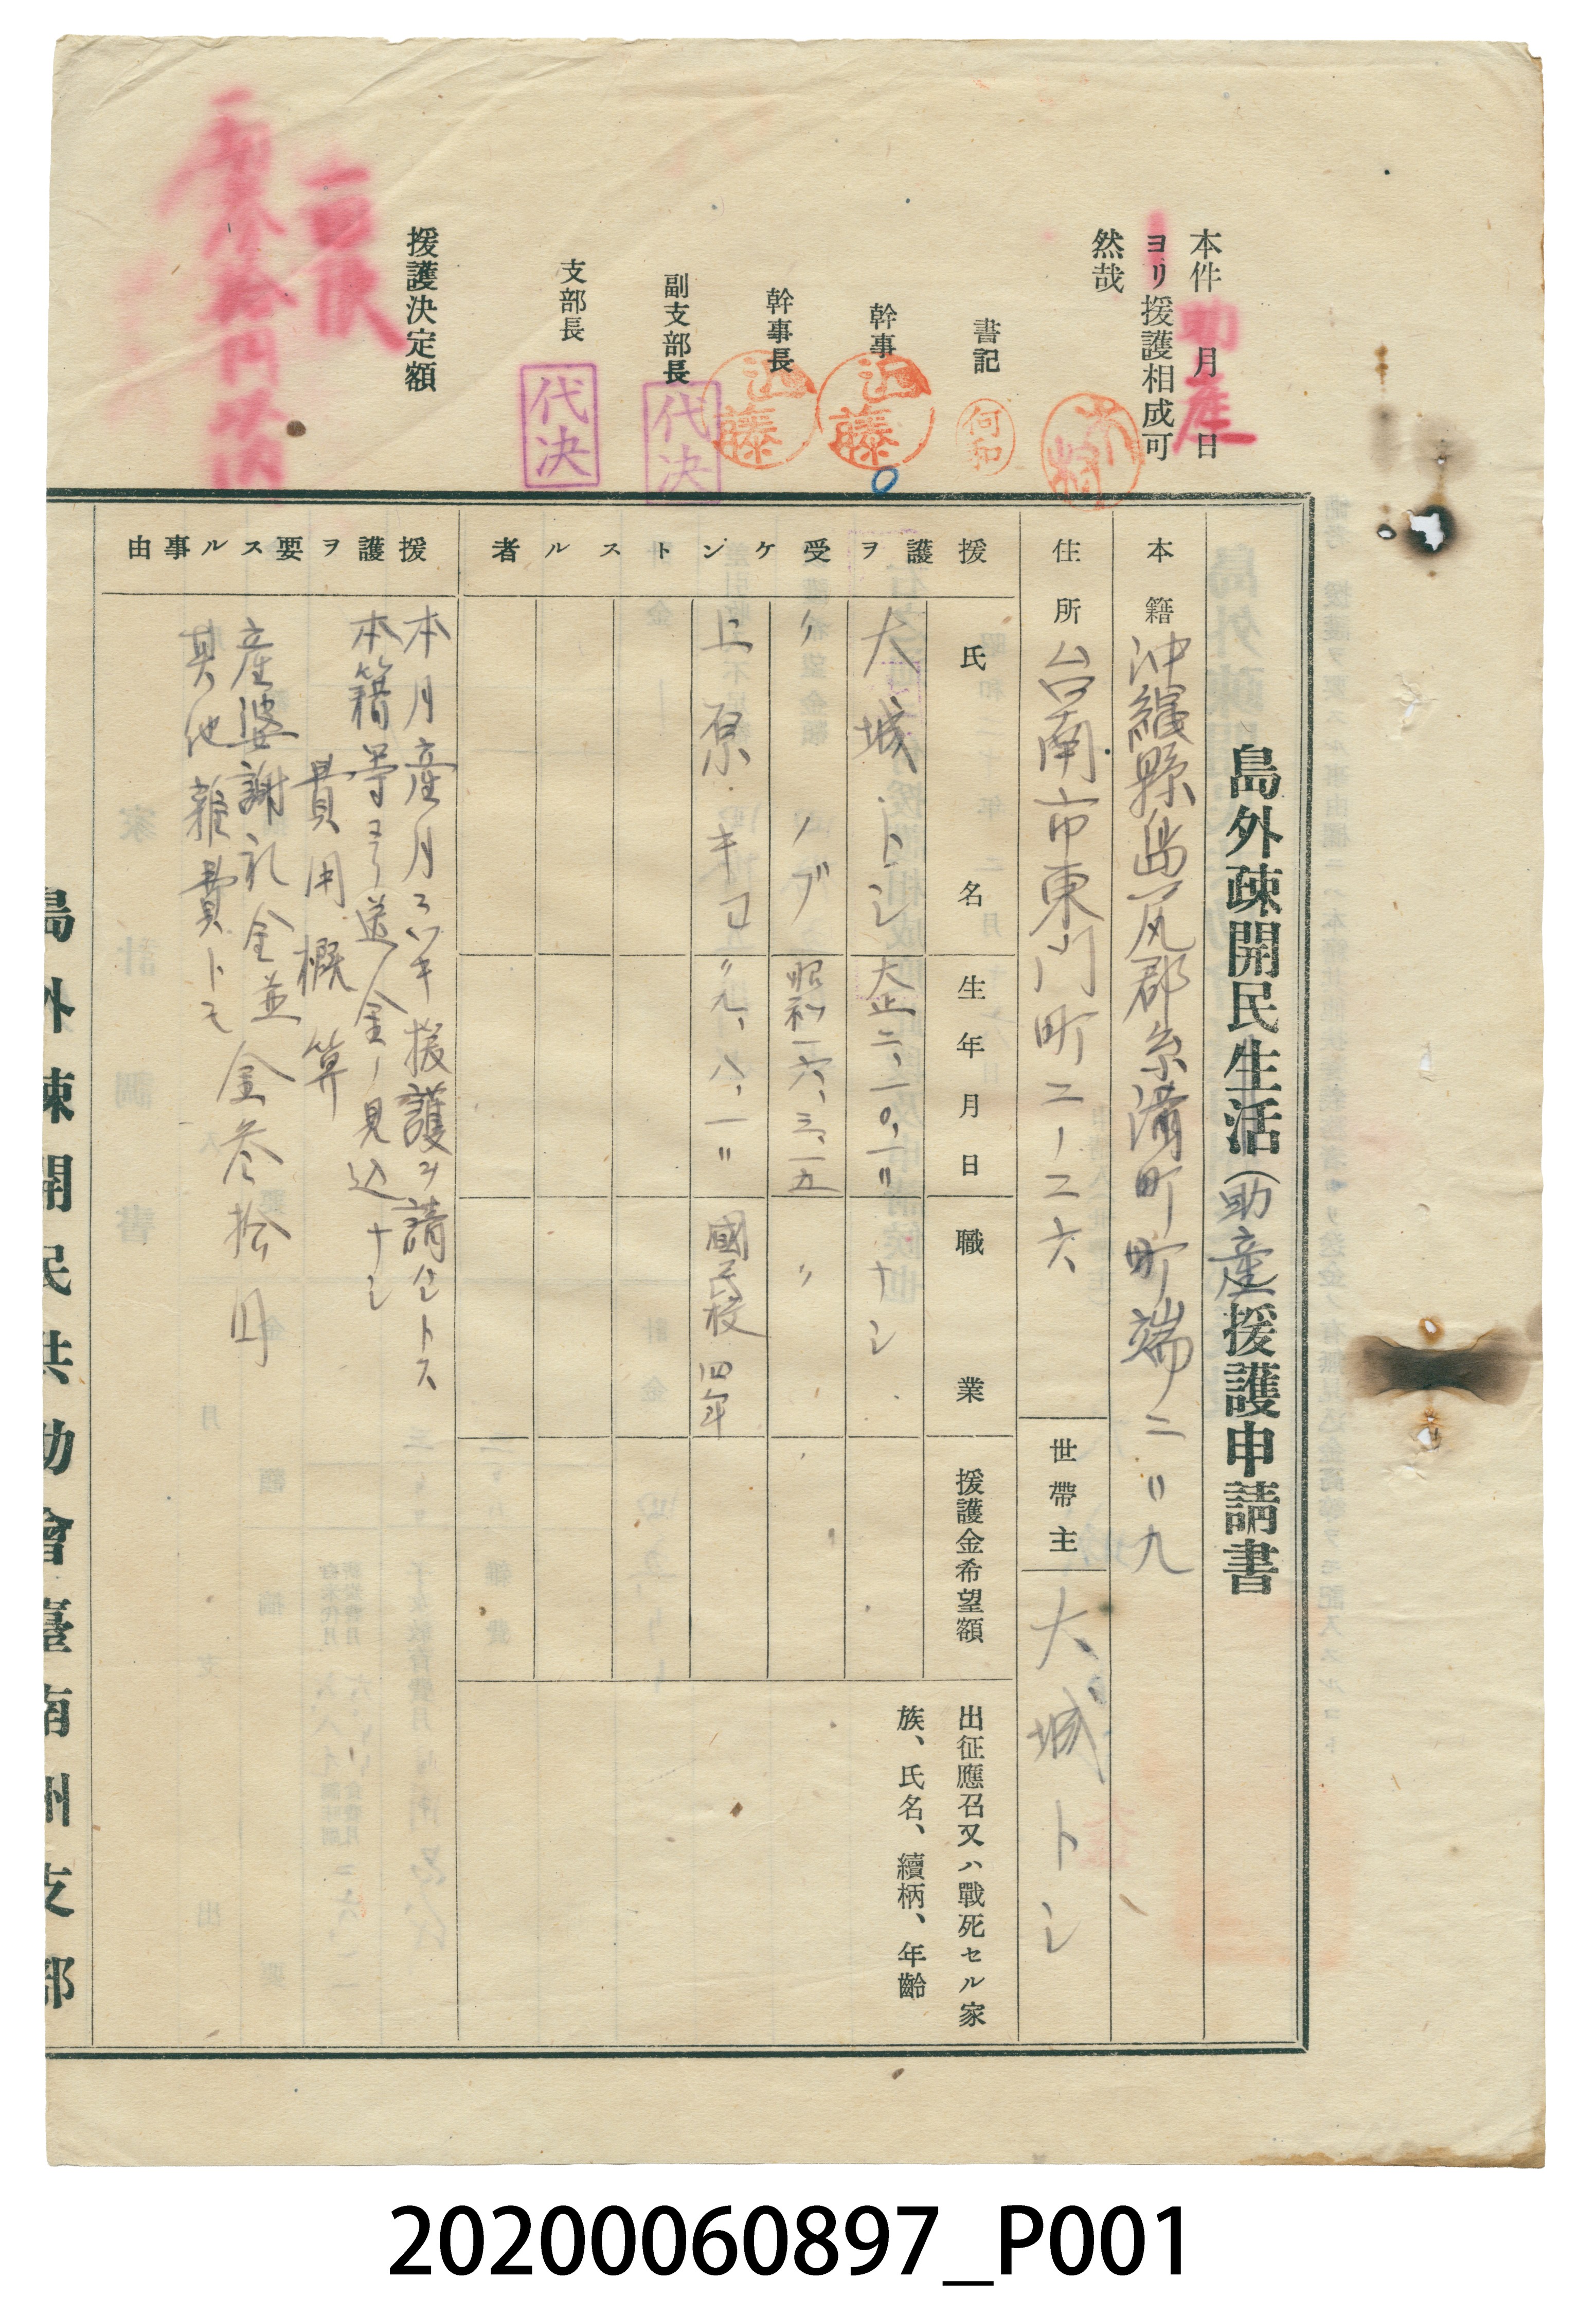 本件 月 日
助産
ヨリ援護相成可
然哉
書記
幹事
近藤
幹事長
近藤
副支部長
代决
支部長
代决
援護決定額
島外疎開民生活(助産援護申請書
本籍 沖縄縣島尻郡糸満町町端ノ二〃九
住所 台南市東門町二ノ二六
世帶主 大城トシ
援護ヲ受ケントスル者
氏名 生年月日 職業 援護金希望額
出征應召又ハ戰死セル家
族、氏名、續柄、年齡
大城トシ 大正二、一〇、一〃 ナシ
〃 ノブ 昭和一六、三、一五 〃
上原キヨ 〃九、八、一〃 國民校四年
援護ヲ要スル事由
本月産月ニツキ援護ヲ請ハントス
本籍等ヨリ送金ノ見込ナシ
費用概算
産婆謝礼金並 金参拾円
其他雜費トモ
島外疎開民共助會臺南州支部
20200060897_P001